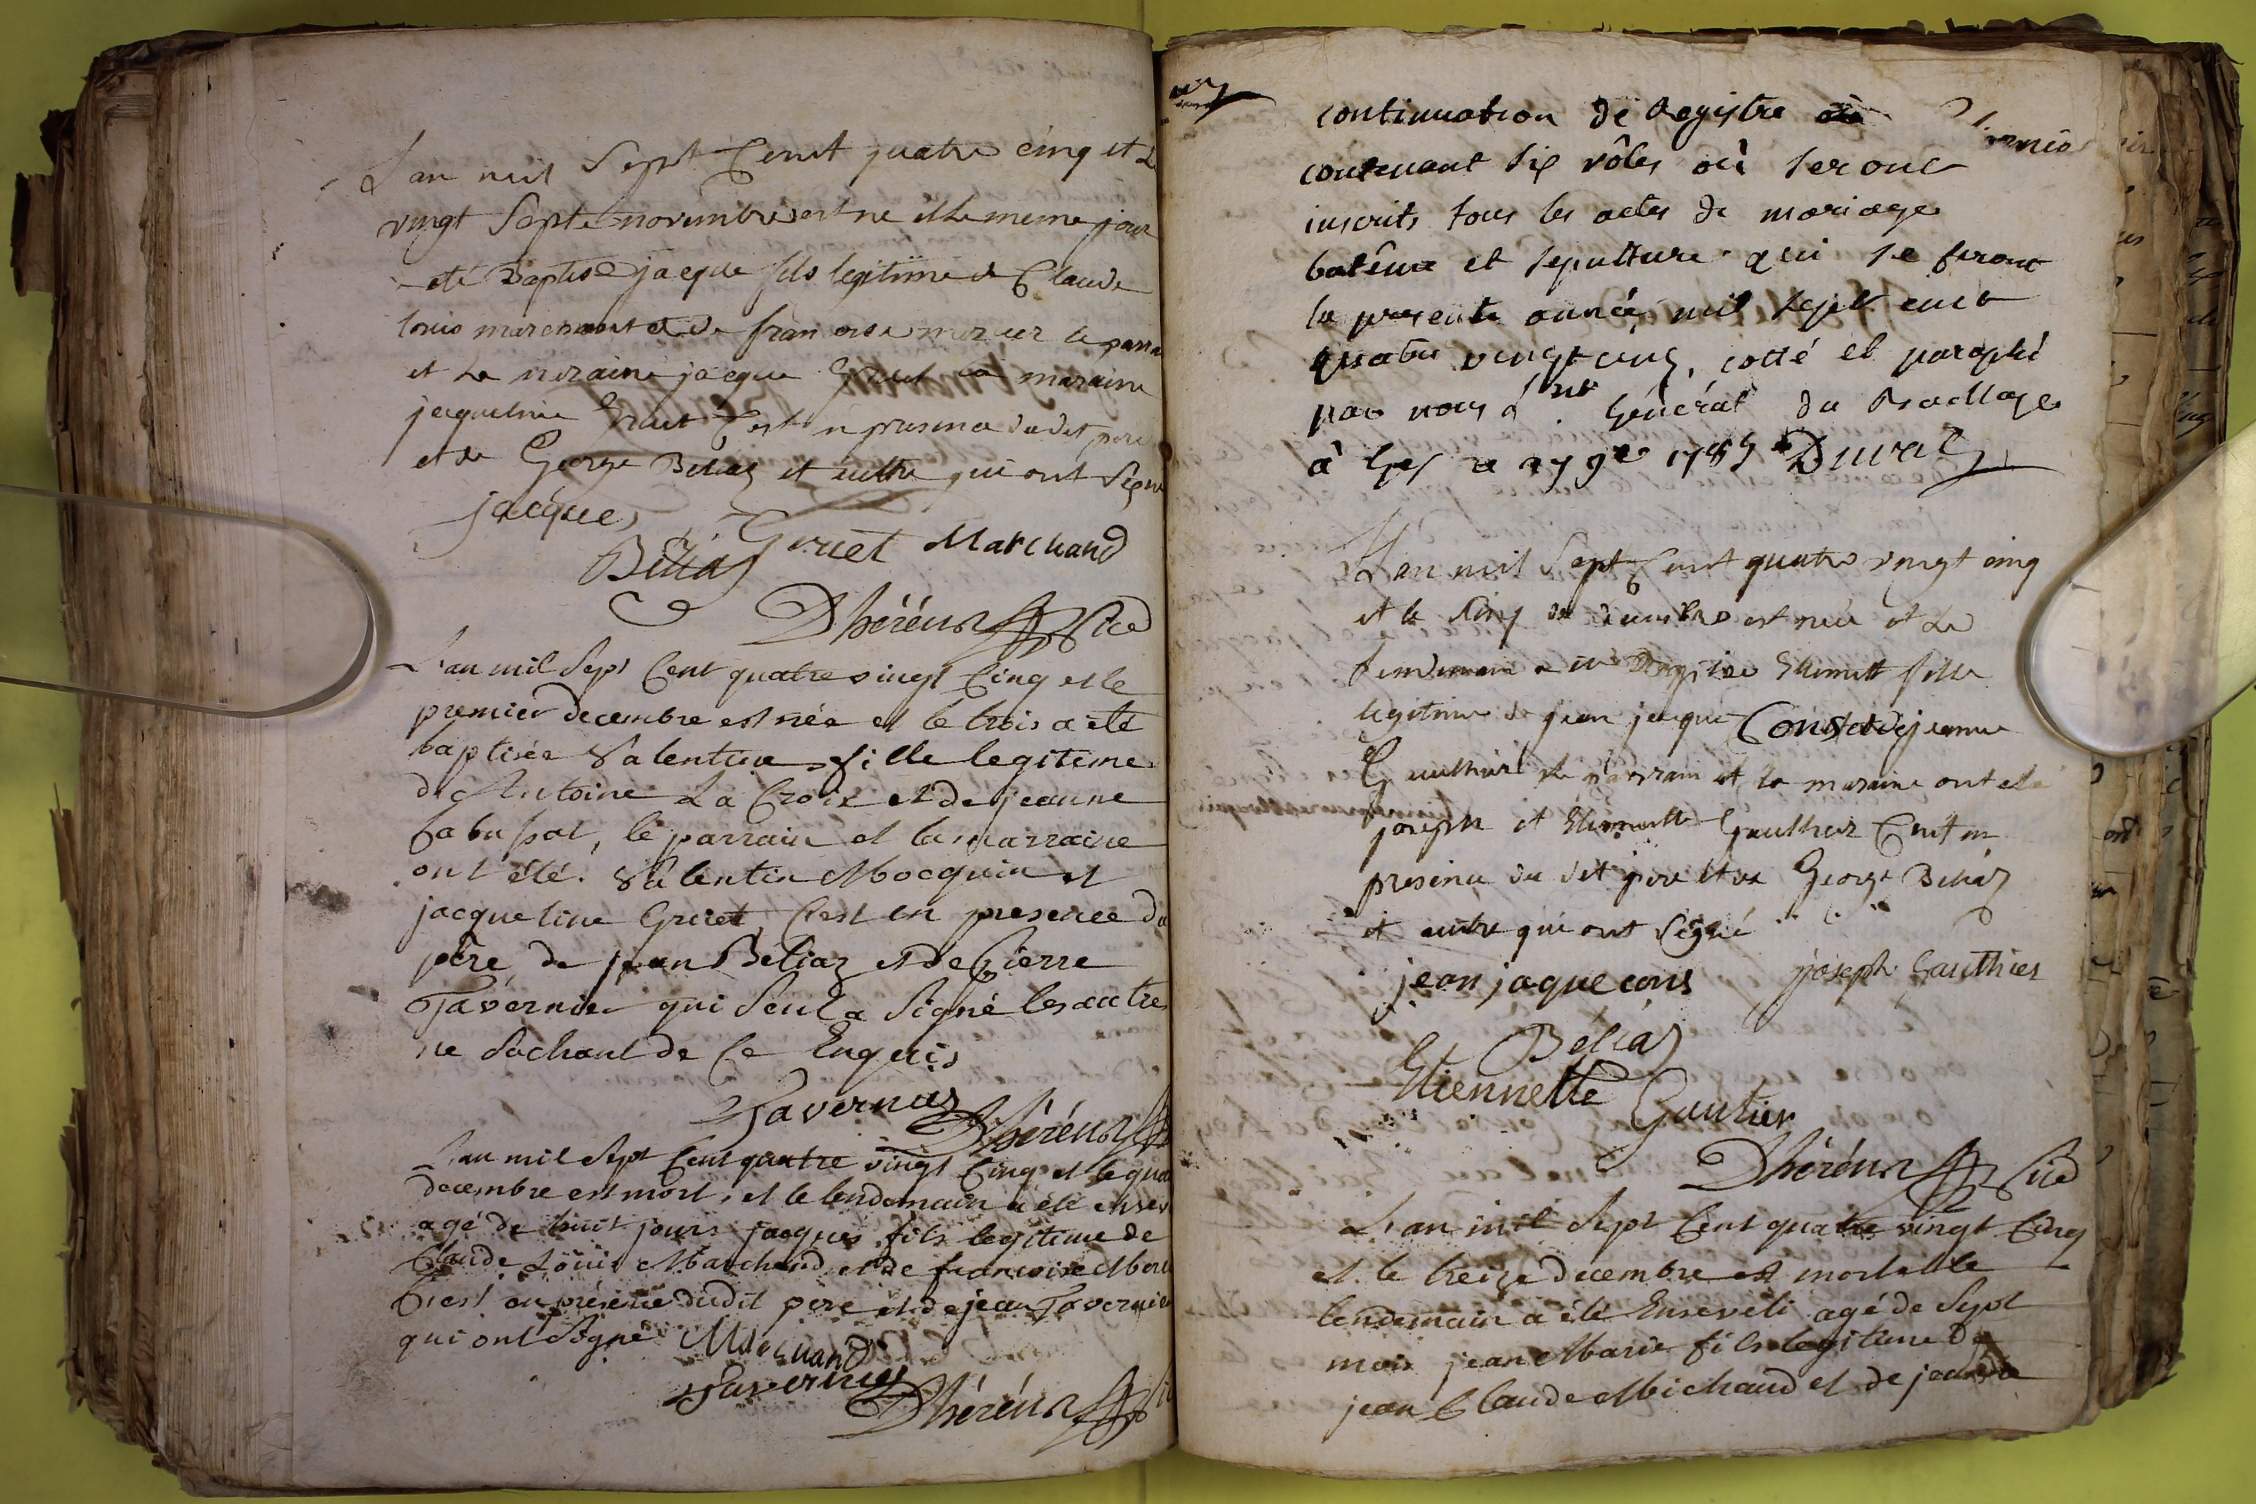 L'an mil Sept Cent quatre cinq et Le
vingt Sept novembre est ne et le meme jour
eté Baptisé jacque fils legitime de Claude
louis marchant et de francoise mercier le parra
et La maraine jacque Gruet la maraine
jacqueline Gruet C'est en presence dudit pere
et de George Béliaz et autre qui ont Signé
jacques Gruet Marchand
Béliaz
Dhéréns Vic
L'an mil Sept Cent quatre vingt Cinq et le
premier decembre est née et le trois a été
baptisée Valentine fille legitime
de Antoine La Croix et de jeanne
Cabussat, le parrain et la marraine
ont été Valentin Mocquin et
jacqueline Gruet, C'est en presence du
père, de jean Béliaz et de Pierre
Tavernier qui Seul a Signé les autres
ne Sachant de Ce Enquis
Tavernier Dhéréns
L'an mil Sept Cent quatre vingt Cinq et le qua
decembre est mort, et le lendemain a été ensev
agé de huit jours jacques fils legitime de
Claude Louis Marchand et de francoise Merc
C'est en présence dudit pere et de jean Tavernier
qui ont Signé Marchand
Tavernier Dhéréns
continuation de Registre
contenant six rôles où seront
inscrits tous les actes de mariage
batême et sepulture qui se feront
la presente année mil sept cent
quatre vingt cinq, cotté et paraphé
par nous Général du Bailliage
à Gex le 27 9bre 1785 Duval
L'an mil Sept Cent quatre vingt cinq
et le Cinq de decembre est née et Le
lendemain a été Baptisée Etiennette fille
legitime de jean jacque Cons et de jeanne
Gaulthier Le parrain et la maraine ont été
joseph et Etiennette Gaulthier C'est en
presence du dit pere et de George Béliaz
et autre qui ont Signé
jean jaque cons joseph Gauthier
Béliaz
Etiennette Gautier
Dhéréns Vic
L'an mil Sept Cent quatre vingt Cinq
et le treize decembre est mort et le
lendemain a été Enseveli agé de Sept
mois jean Marie fils legitime de
jean Claude Michaud et de jeanne